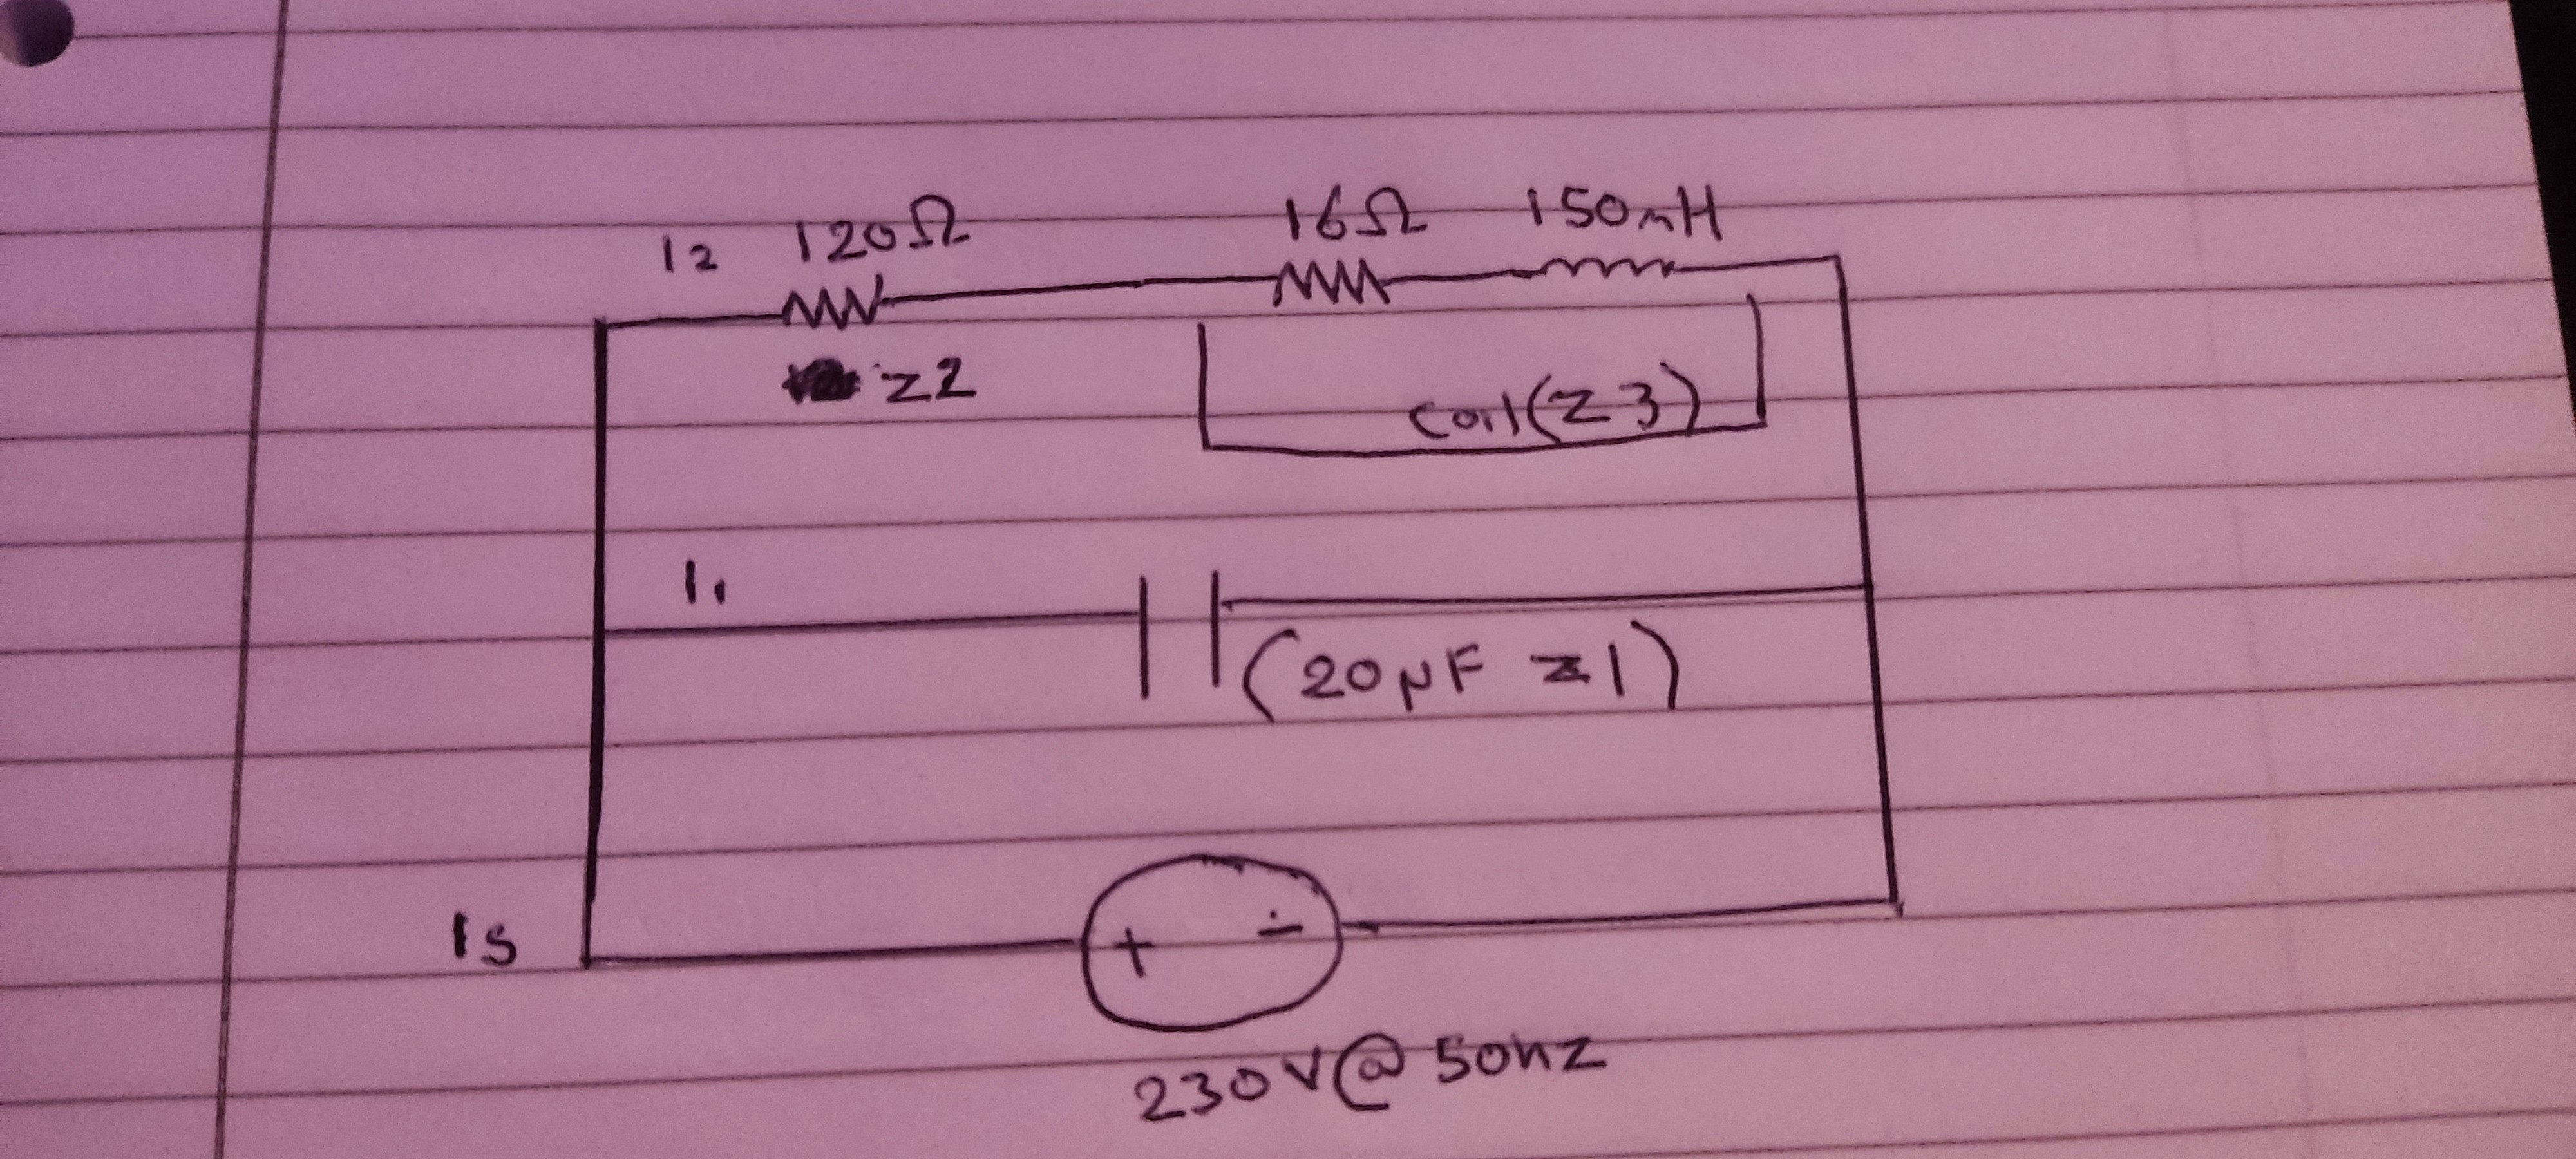 I2 120Ω 16Ω 150mH
Z2
coil(Z3)
I1
(20μF Z1)
Is
+ -
230V@50Hz